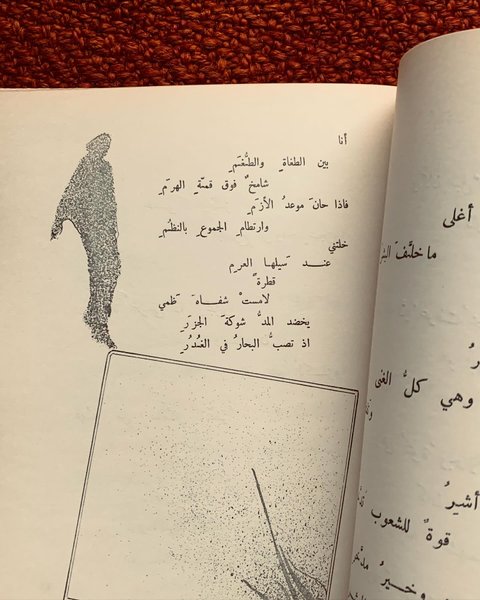 أنا
بين الطغاةِ والطُّغَمِ
شامخٌ فوق قمّةِ الهرَمِ
فاذا حانَ موعدُ الأزَمِ
وارتطامِ الجموعِ بالنظُمِ
خلتني
عند سَيلها العرِمِ
قطرةً
لامستْ شفاهَ ظَمي
يخضد المدُّ شوكةَ الجزَرِ
اذ تصبُّ البحارُ في الغُدُرِ
أغلى
ما خلَّفَ
وهي كلُّ الغنى
أشيرُ
قوةٌ للشعوب
وخيرُ